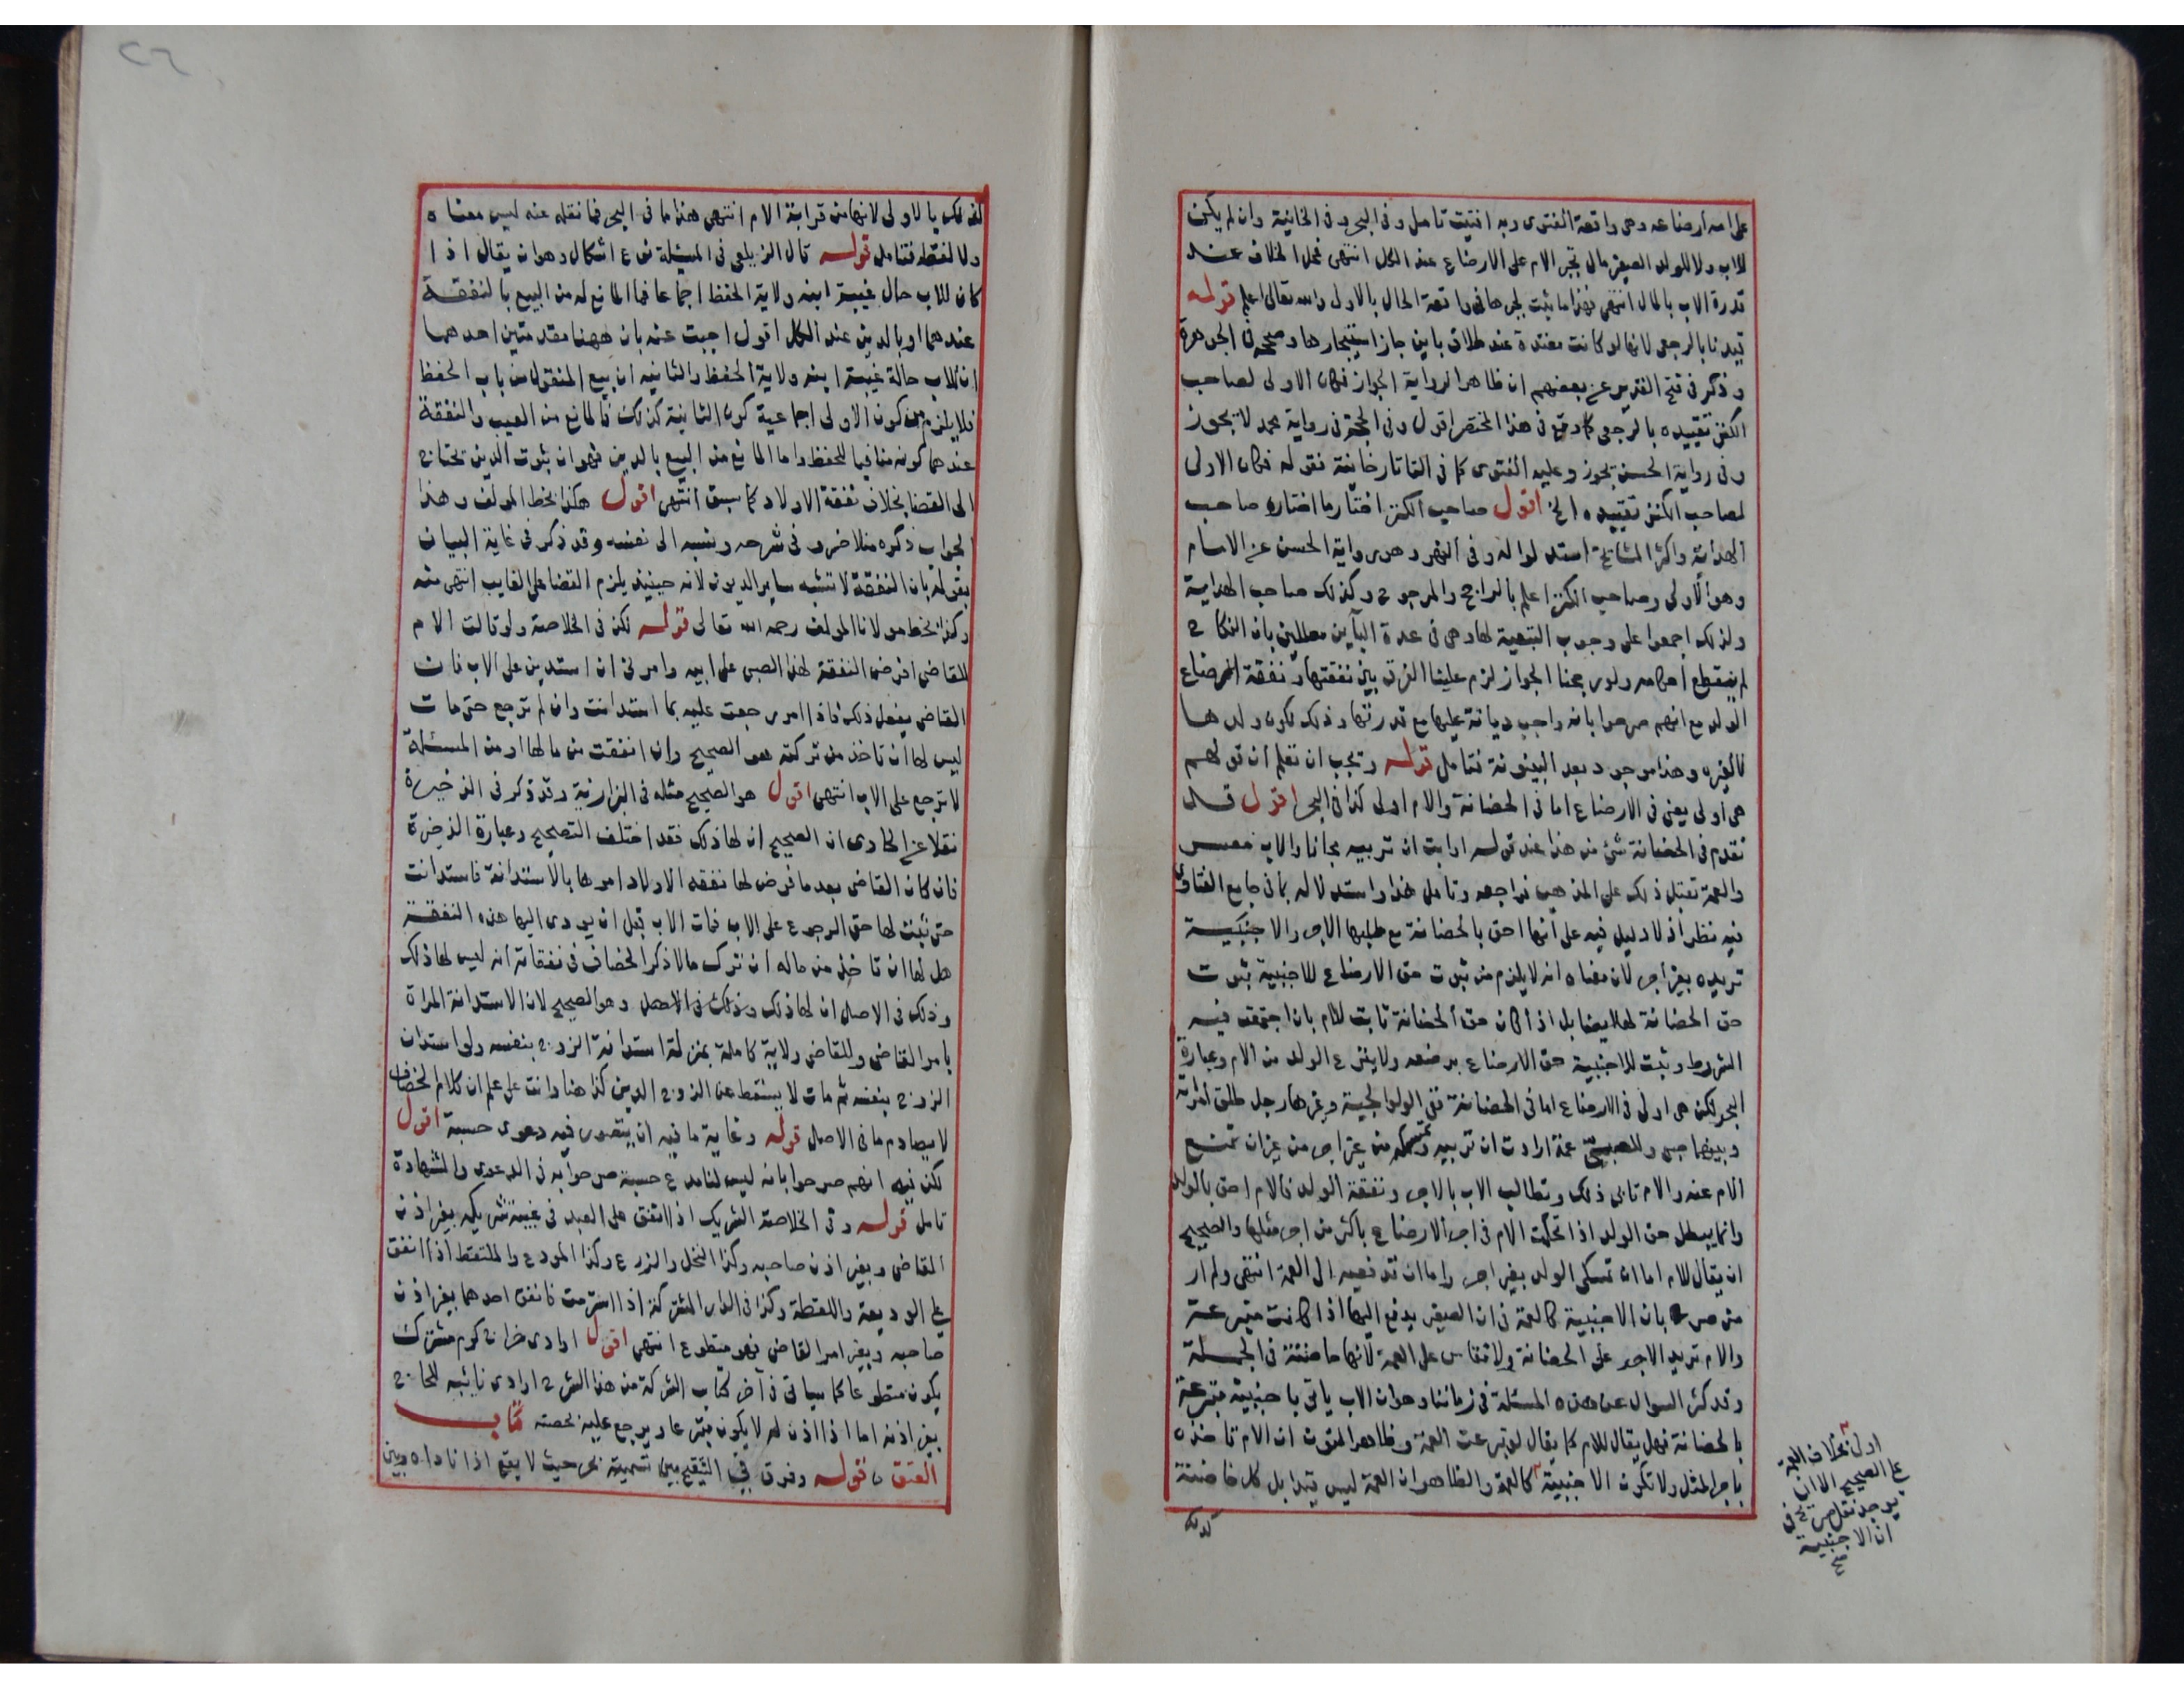 على امه ارضاعه وهى واقعة الفتوى وبه افتيت تامل وفى البحر وفى الخانية وان لم يكن
للاب ولا للولد الصغير مال تجبر الام على الارضاع عند الكل انتهى فمحل الخلاف عند
قدرة الاب بالمال انتهى فهذا ما يثبت لجرها فى واقعة الحال بالاولى والله تعالى اعلم قوله
قيدنا بالرجعى لانها لو كانت معتدة عند طلاق باين جاز استيجارها وصححه فى الجوهرة
وذكر فى فتح القدير عن بعضهم ان ظاهر الرواية الجواز فكان الاولى لصاحب
الكنز تقييده بالرجعى كما وقع فى هذا المختصر اقول وفى الحجة فى رواية محمد لا تجوز
وفى رواية الحسن تجوز وعليه الفتوى كما فى التاتارخانية فقوله فكان الاولى
لصاحب الكنز تقييده الخ اقول صاحب الكنز اختار ما اختاره صاحب
الهداية واكثر المشايخ استدلوا له وفى النهر وهى رواية الحسن عن الامام
وهو الاولى وصاحب الكنز اعلم بالراجح والمرجوح وكذلك صاحب الهداية
ولذلك اجمعوا على وجوب التبعية لها وهى فى عدة الباين معللين بان النكاح
لم ينقطع احكامه ولو رجحنا الجواز لزم علينا الفرق بين نفقتها ونفقة ارضاع
الولد مع انهم صرحوا بانه واجب ديانة عليها مع قدرتها وذلك لكون ولدها
كالغيره وهذا موجود بعد البينونة فتامل قوله وتجب ان تعلم ان قولهم
هى اولى يعنى فى الارضاع اما فى الحضانة والام اولى كذا فى البحر اقول قد
تقدم فى الحضانة شئ من هذا عند قوله او ابت ان تربيه مجانا والاب معسر
والعمة تقبل ذلك على المذهب فراجعه وتامل هذا واستدلاله بما فى جامع الفتاوى
فيه نظر اذ لا دليل فيه على انها احق بالحضانة مع طلبها الاجر والاجنبية
تريده بغير اجر لان معناه انه لا يلزم من ثبوت حق الارضاع للاجنبية ثبوت
حق الحضانة لها ايضا بل اذا كان حق الحضانة ثابت للام بان اجتمعت فيه
الشروط وثبت للاجنبية حق الارضاع برضعه ولا ينزع الولد من الام وعبارة
البحر لكن هى اولى فى الارضاع اما فى الحضانة ففى الولوالجية وغيرها رجل طلق امراته
وبينهما صبى وللصبى عمة ارادت ان تربيه وتمسكه من غير اجر من غير ان تمنع
الام عنه والام تابى ذلك وتطالب الاب بالاجر ونفقة الولد فالام احق بالولد
وانما يبطل حق الولد اذا تحكمت الام فى اجر الارضاع باكثر من اجر مثلها والصحيح
ان يقال للام اما ان تمسكى الولد بغير اجر واما ان تدفعيه الى العمة انتهى ولم ار
من صرح بان الاجنبية كالعمة فى ان الصغير يدفع اليها اذا كانت متبرعة
والام تريد الاجر على الحضانة ولا تقاس على العمة لانها حاضنة فى الجملة
وقد كثر السوال عن هذه المسئلة فى زماننا وهو ان الاب ياتى باجنبية متبرعة
بالحضانة فهل يقال للام كما يقال لو تبرعت العمة وظاهر المتون ان الام تاخذه
باجر المثل ولا تكون الاجنبية كالعمة والظاهر ان العمة ليس قيدا بل كل حاضنة
كذلك
اولى بخلاف العمة
على الصحيح الا ان
يوجد نقل صريح فى
ان الاجنبية
صح
كذلك بالاولى لانها من قرابة الام انتهى هذا ما فى البحر فما نقله عنه ليس معناه
ولا لفظه فتامل قوله قال الزيلعى فى المسئلة نوع اشكال وهو ان يقال اذا
كان للاب حال غيبة ابنه ولاية الحفظ اجماعا فما المانع له من البيع بالنفقة
عندهما او بالدين عند الكل اقول اجبت عنه بان ههنا مقدمتين احدهما
ان للاب حالة غيبة ابنه ولاية الحفظ والثانيه ان بيع المنقول من باب الحفظ
فلا يلزم من كون الاولى اجماعية كون الثانية كذلك فالمانع من البيع بالنفقة
عندهما كونه منافيا للحفظ واما المانع من البيع بالدين فهو ان ثبوت الدين يحتاج
الى القضا بخلاف نفقة الاولاد كما سبق انتهى اقول هكذا بخط المولف وهذا
الجواب ذكره منلا خسرو فى شرحه ونسبه الى نفسه وقد ذكر فى غاية البيان
بقوله بان النفقة لا تشبه ساير الديون لانه حينيذ يلزم القضا على الغايب انتهى منه
وكذا بخط مولانا المولف رحمه الله تعالى قوله لكن فى الخلاصة ولو قالت الام
للقاضى افرض النفقة لهذا الصبى على ابيه وامرنى ان استدين على الاب فان
القاضى يفعل ذلك فاذا امر رجعت عليه بما استدانت وان لم ترجع حتى مات
ليس لها ان تاخذ من تركته هو الصحيح وان انفقت من مالها او من المسئلة
لا ترجع على الاب انتهى اقول هو الصحيح مثله فى البزازية وقد ذكر فى الذخيرة
نقلا عن الحاوى ان الصحيح ان لها ذلك فقد اختلف التصحيح وعبارة الذخيرة
فان كان القاضى بعد ما فرض لها نفقه الاولاد امرها بالاستدانة فاستدانت
حتى يثبت لها حق الرجوع على الاب فمات الاب قبل ان يودى اليها هذه النفقة
هل لها ان تاخذ من ماله ان ترك مالا ذكر الخصاف فى نفقاته انه ليس لها ذلك
وذلك فى الاصل ان لها ذلك وذلك فى الاصل وهو الصحيح لان الاستدانة المراة
بامر القاضى وللقاضى ولاية كاملة بمنزلة استدانة الزوج بنفسه ولو استدان
الزوج بنفسه ثم مات لا يسقط عن الزوج الدين كذا هنا وانت على علم ان كلام الخصاف
لا يصادم ما فى الاصل قوله وغاية ما فيه ان يتصور فيه دعوى حسبة اقول
لكن فيه انهم صرحوا بانه ليس لنا مدع حسبة صرحوا به فى الدعوى والشهادة
تامل قوله وفى الخلاصة الشريك اذا انفق على العبد فى غيبة شريكه بغير اذن
القاضى وبغير اذن صاحبه وكذا النخل والزرع وكذا المودع والملتقط اذا انفق
على الوديعة واللقطة وكذا فى الدار المشتركة اذا استرمت فانفق احدهما بغير اذن
صاحبه وبغير امر القاضى فهو متطوع انتهى اقول او ادى خراج كرم مشترك
يكون متطوعا كما سياتى فى آخر كتاب الشركة من هذا الشرح او ادى نائبه للحاج
بغير اذنه اما اذا اذن له لا يكون متبرعا ويرجع عليه بحصته كتاب
العتق قوله وفرق فى التنقيح بين تسميته بحر حيث لا يقع اذا ناداه وبين